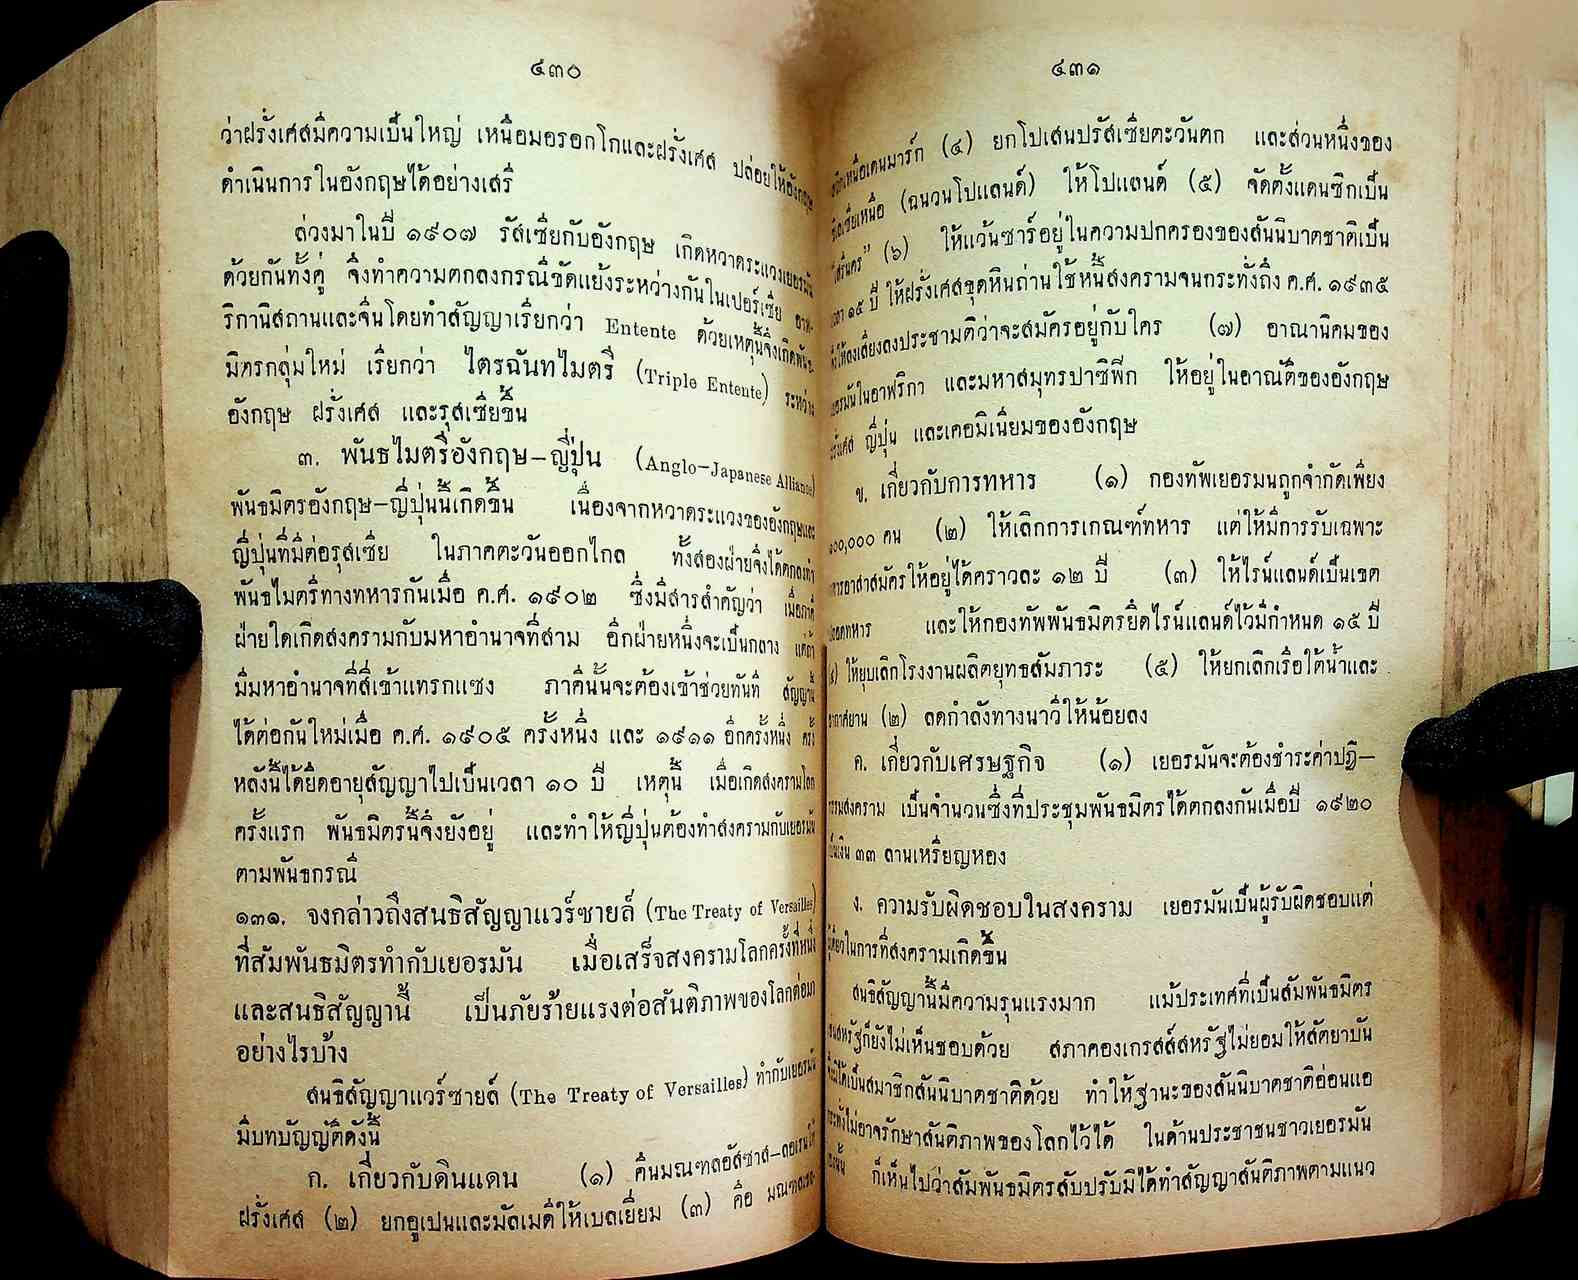 ๔๓๐
ว่าฝรั่งเศสมีความเป็นใหญ่ เหนือมอรอกโกและฝรั่งเศส ปล่อยให้อังกฤษ
ดำเนินการในอังกฤษได้อย่างเสรี
ล่วงมาในปี ๑๙๐๗ รัสเซียกับอังกฤษ เกิดหวาดระแวงเยอรมัน
ด้วยกันทั้งคู่ จึงทำความตกลงกรณีขัดแย้งระหว่างกันในเปอร์เซีย อาฟ-
ริกานิสถานและจีนโดยทำสัญญาเรียกว่า Entente ด้วยเหตุนี้จึงเกิดพันธ
มิตรกลุ่มใหม่ เรียกว่า ไตรฉันทไมตรี (Triple Entente) ระหว่าง
อังกฤษ ฝรั่งเศส และรุสเซียขึ้น
๓. พันธไมตรีอังกฤษ–ญี่ปุ่น (Anglo–Japanese Alliance)
พันธมิตรอังกฤษ–ญี่ปุ่นนี้เกิดขึ้น เนื่องจากหวาดระแวงของอังกฤษและ
ญี่ปุ่นที่มีต่อรุสเซีย ในภาคตะวันออกไกล ทั้งสองฝ่ายจึงได้ตกลงทำ
พันธไมตรีทางทหารกันเมื่อ ค.ศ. ๑๙๐๒ ซึ่งมีสารสำคัญว่า เมื่อภาคี
ฝ่ายใดเกิดสงครามกับมหาอำนาจที่สาม อีกฝ่ายหนึ่งจะเป็นกลาง แต่ถ้า
มีมหาอำนาจที่สี่เข้าแทรกแซง ภาคีนั้นจะต้องเข้าช่วยทันที สัญญานี้
ได้ต่อกันใหม่เมื่อ ค.ศ. ๑๙๐๕ ครั้งหนึ่ง และ ๑๙๑๑ อีกครั้งหนึ่ง ครั้ง
หลังนี้ได้ยืดอายุสัญญาไปเป็นเวลา ๑๐ ปี เหตุนี้ เมื่อเกิดสงครามโลก
ครั้งแรก พันธมิตรนี้จึงยังอยู่ และทำให้ญี่ปุ่นต้องทำสงครามกับเยอรมัน
ตามพันธกรณี
๑๓๑. จงกล่าวถึงสนธิสัญญาแวร์ซายล์ (The Treaty of Versailles)
ที่สัมพันธมิตรทำกับเยอรมัน เมื่อเสร็จสงครามโลกครั้งที่หนึ่ง
และสนธิสัญญานี้ เป็นภัยร้ายแรงต่อสันติภาพของโลกต่อมา
อย่างไรบ้าง
สนธิสัญญาแวร์ซายล์ (The Treaty of Versailles) ทำกับเยอรมัน
มีบทบัญญัติดังนี้
ก. เกี่ยวกับดินแดน (๑) คืนมณฑลอัลซาส–ลอเรนให้
ฝรั่งเศส (๒) ยกอูเปนและมัลเมดีให้เบลเยี่ยม (๓) คือ มณฑล
๔๓๑
เหนือเดนมาร์ก (๔) ยกโปเสนปรัสเซียตะวันตก และส่วนหนึ่งของ
ซิลเซียเหนือ (ฉนวนโปแลนด์) ให้โปแลนด์ (๕) จัดตั้งแดนซิกเป็น
"เสรีนคร" (๖) ให้แว้นซาร์อยู่ในความปกครองของสันนิบาตชาติเป็น
เวลา ๑๕ ปี ให้ฝรั่งเศสขุดหินถ่านใช้หนี้สงครามจนกระทั่งถึง ค.ศ. ๑๙๓๕
ให้ลงเสียงลงประชามติว่าจะสมัครอยู่กับใคร (๗) อาณานิคมของ
เยอรมันในอาฟริกา และมหาสมุทรปาซิพีก ให้อยู่ในอาณัติของอังกฤษ
ฝรั่งเศส ญี่ปุ่น และเดอมิเนียมของอังกฤษ
ข. เกี่ยวกับการทหาร (๑) กองทัพเยอรมนถูกจำกัดเพียง
๑๐๐,๐๐๐ คน (๒) ให้เลิกการเกณฑ์ทหาร แต่ให้มีการรับเฉพาะ
ทหารอาสาสมัครให้อยู่ได้คราวละ ๑๒ ปี (๓) ให้ไรน์แลนด์เป็นเขต
ปลอดทหาร และให้กองทัพพันธมิตรยึดไรน์แลนด์ไว้มีกำหนด ๑๕ ปี
(๔) ให้ยุบเลิกโรงงานผลิตยุทธสัมภาระ (๕) ให้ยกเลิกเรือใต้น้ำและ
อากาศยาน (๒) ลดกำลังทางนาวีให้น้อยลง
ค. เกี่ยวกับเศรษฐกิจ (๑) เยอรมันจะต้องชำระค่าปฏิ–
กรรมสงคราม เป็นจำนวนซึ่งที่ประชุมพันธมิตรได้ตกลงกันเมื่อปี ๑๙๒๐
เป็นเงิน ๓๓ ลานเหรียญทอง
ง. ความรับผิดชอบในสงคราม เยอรมันเป็นผู้รับผิดชอบแต่
ผู้เดียวในการที่สงครามเกิดขึ้น
สนธิสัญญานี้มีความรุนแรงมาก แม้ประเทศที่เป็นสัมพันธมิตร
เช่นสหรัฐก็ยังไม่เห็นชอบด้วย สภาคองเกรสส์สหรัฐไม่ยอมให้สัตยาบัน
ได้เป็นสมาชิกสันนิบาตชาติด้วย ทำให้ฐานะของสันนิบาตชาติอ่อนแอ
กระทั่งไม่อาจรักษาสันติภาพของโลกไว้ได้ ในด้านประชาชนชาวเยอรมัน
ก็เห็นไปว่าสัมพันธมิตรสับปรับมิได้ทำสัญญาสันติภาพตามแนว